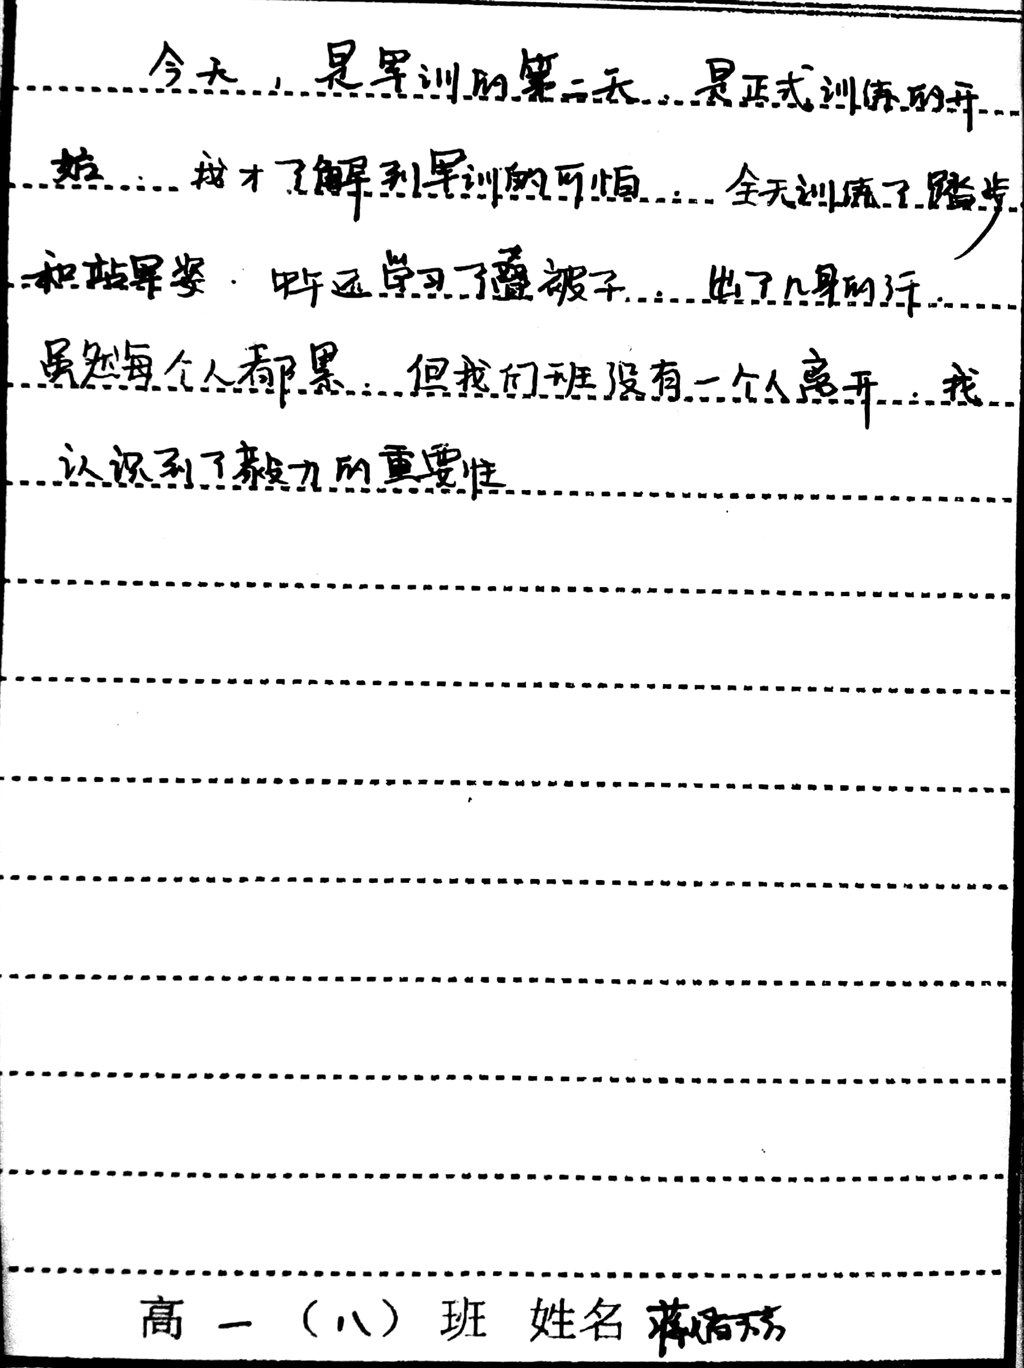 今天，是军训的第二天，是正式训练的开
始，我才了解到军训的可怕，全天训练了踏步
和站军姿，中午还学习了叠被子，出了几身的汗，
虽然每个人都累，但我们班没有一个人离开，我
认识到了毅力的重要性
高一（八）班 姓名